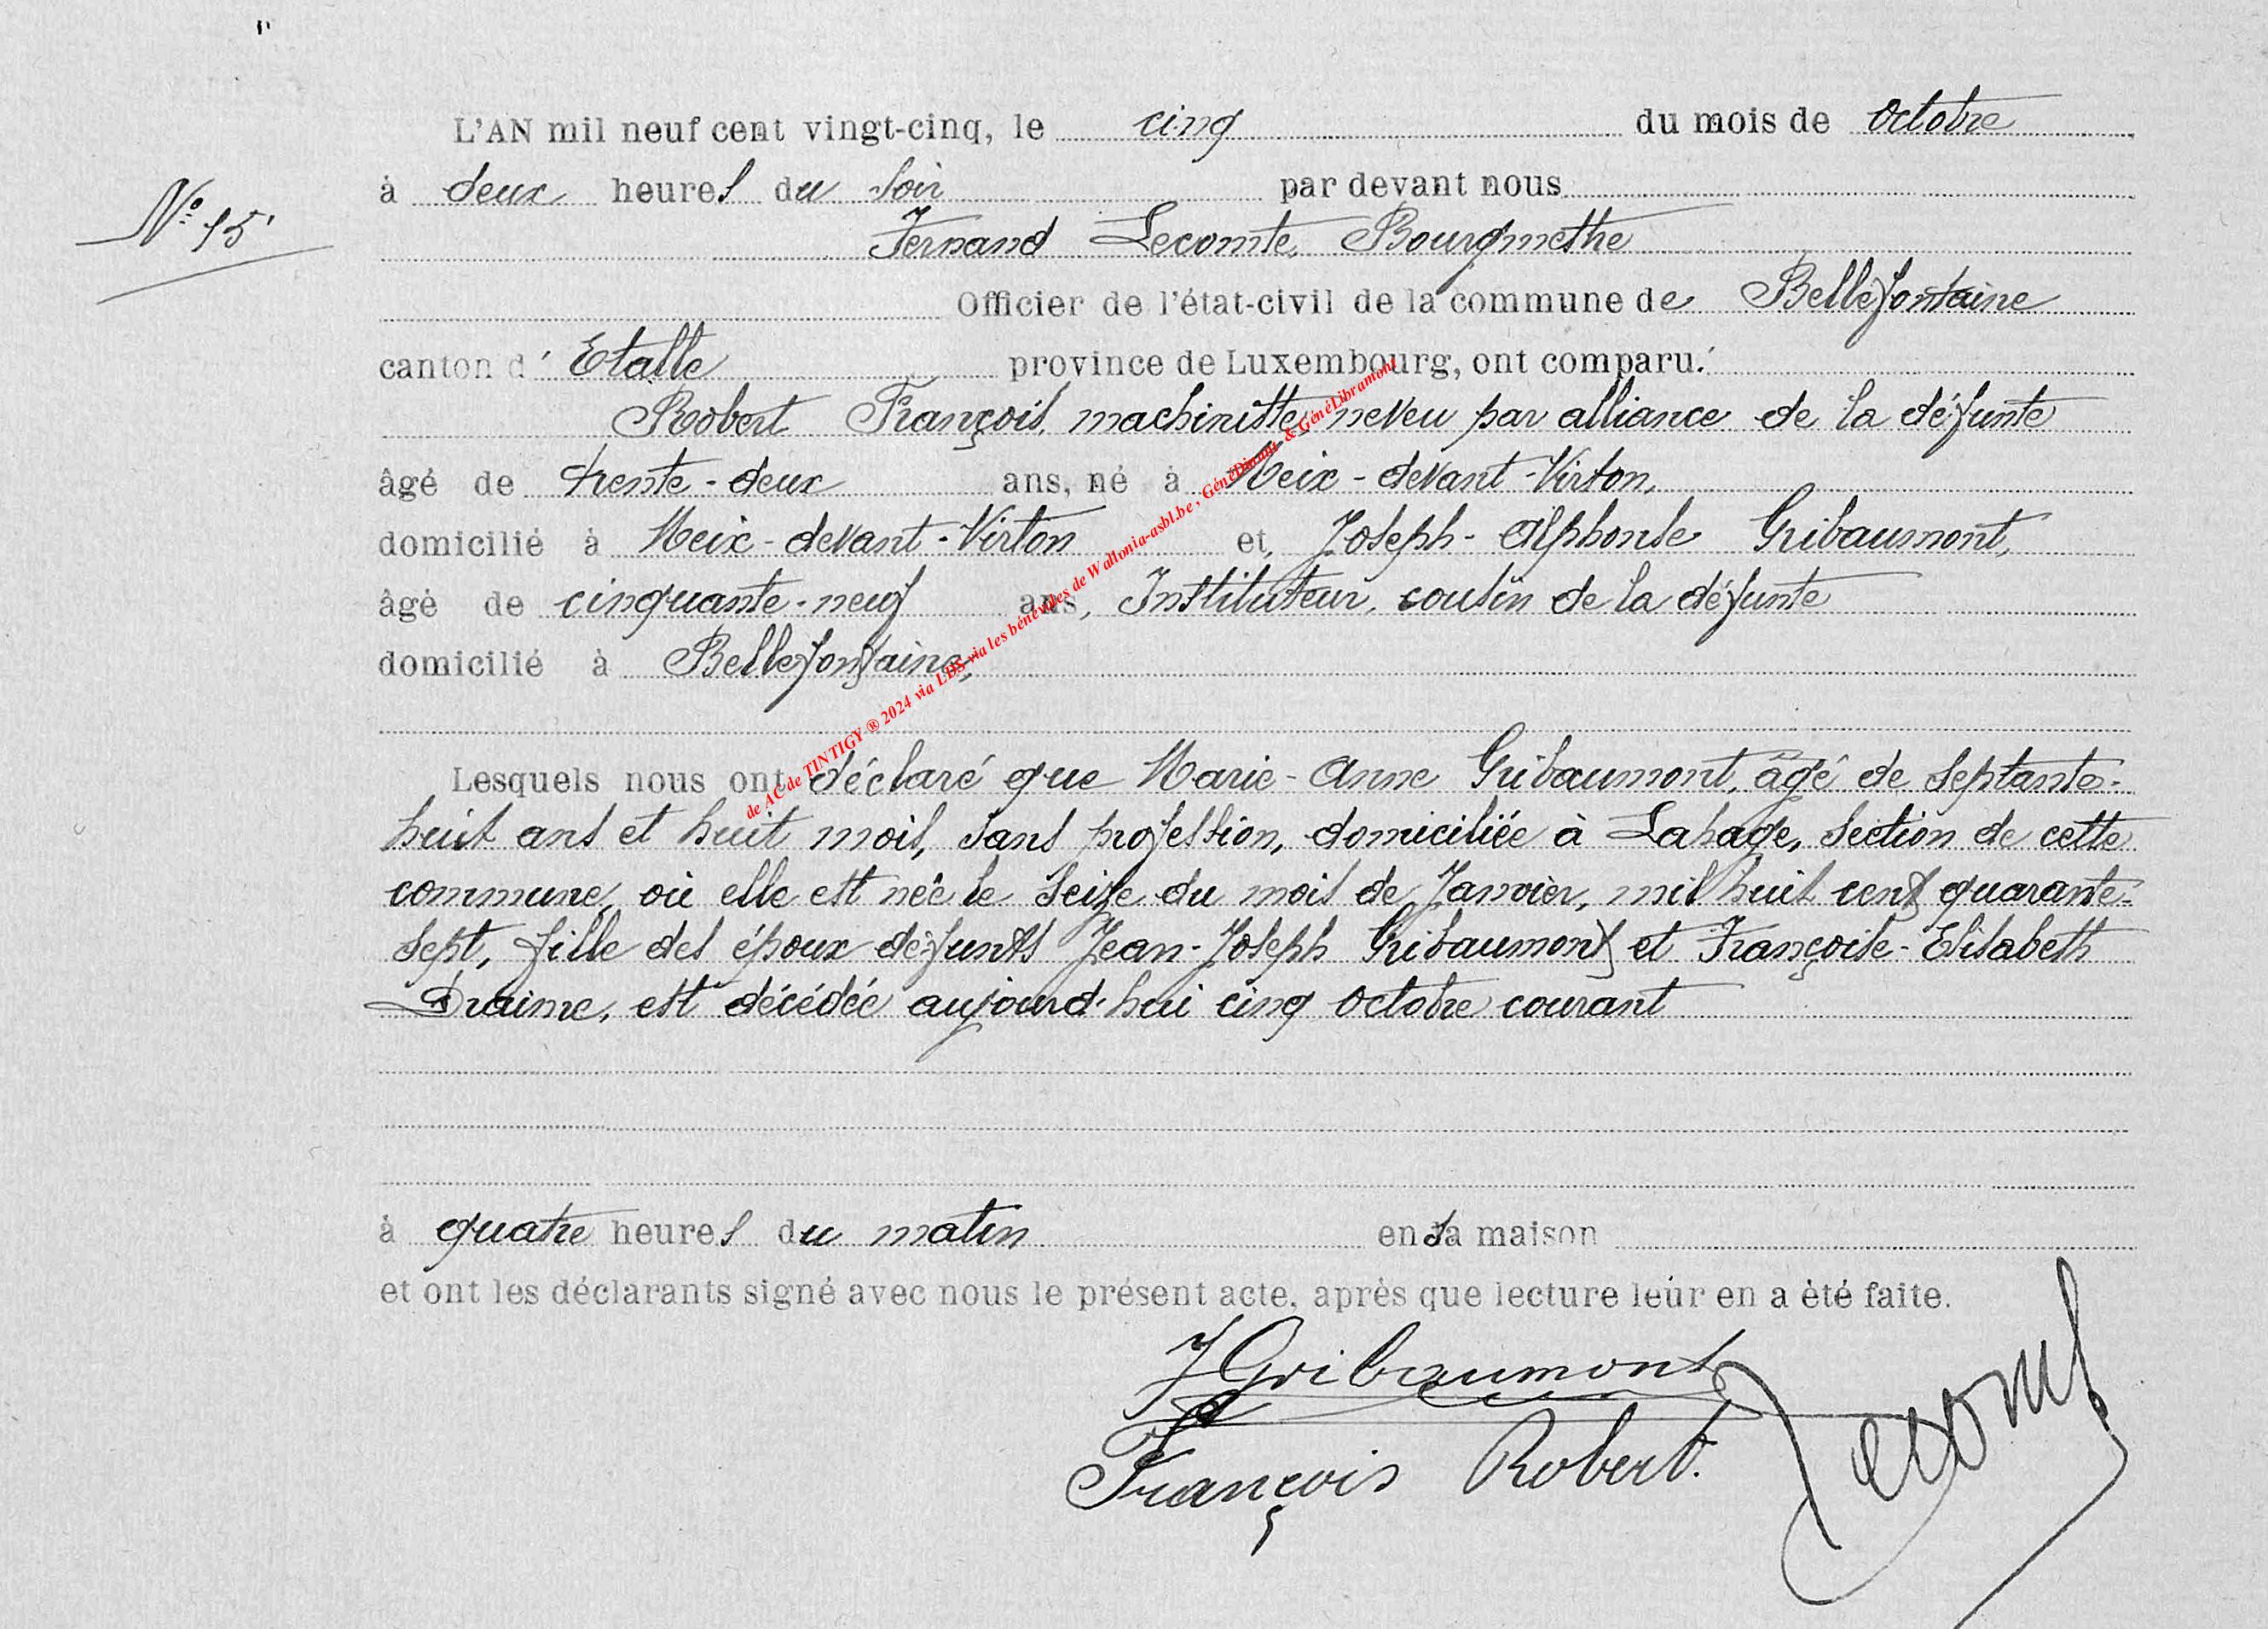 L'AN mil neuf cent vingt-cinq, le cinq du mois de Octobre
N° 15
à deux heures du soir par devant nous
Fernand Lecomte, Bourgmestre
Officier de l'état-civil de la commune de Bellefontaine
canton d'Etalle province de Luxembourg, ont comparu:
Robert François, machiniste, neveu par alliance de la défunte
âgé de trente-deux ans, né à Meix-devant-Virton,
domicilié à Meix-devant-Virton et, Joseph-Alphonse Gribaumont,
âgé de cinquante-neuf ans, Instituteur, cousin de la défunte
domicilié à Bellefontaine,
Lesquels nous ont déclaré que Marie-Anne Gribaumont, âgé de septante-
huit ans et huit mois, sans profession, domiciliée à Lahage, section de cette
commune, où elle est née le seize du mois de Janvier, mil huit cent quarante-
sept, fille des époux défunts Jean-Joseph Gribaumont et Françoise-Elisabeth
Draime, est décédée aujourd'hui cinq octobre courant
à quatre heures du matin en sa maison
et ont les déclarants signé avec nous le présent acte, après que lecture leur en a été faite.
J Gribaumont
François Robert.
Lecomte
de AC de TINTIGY ® 2024 via LDS via les bénévoles de Wallonia-asbl.be, GénéDinant & GénéLibramont